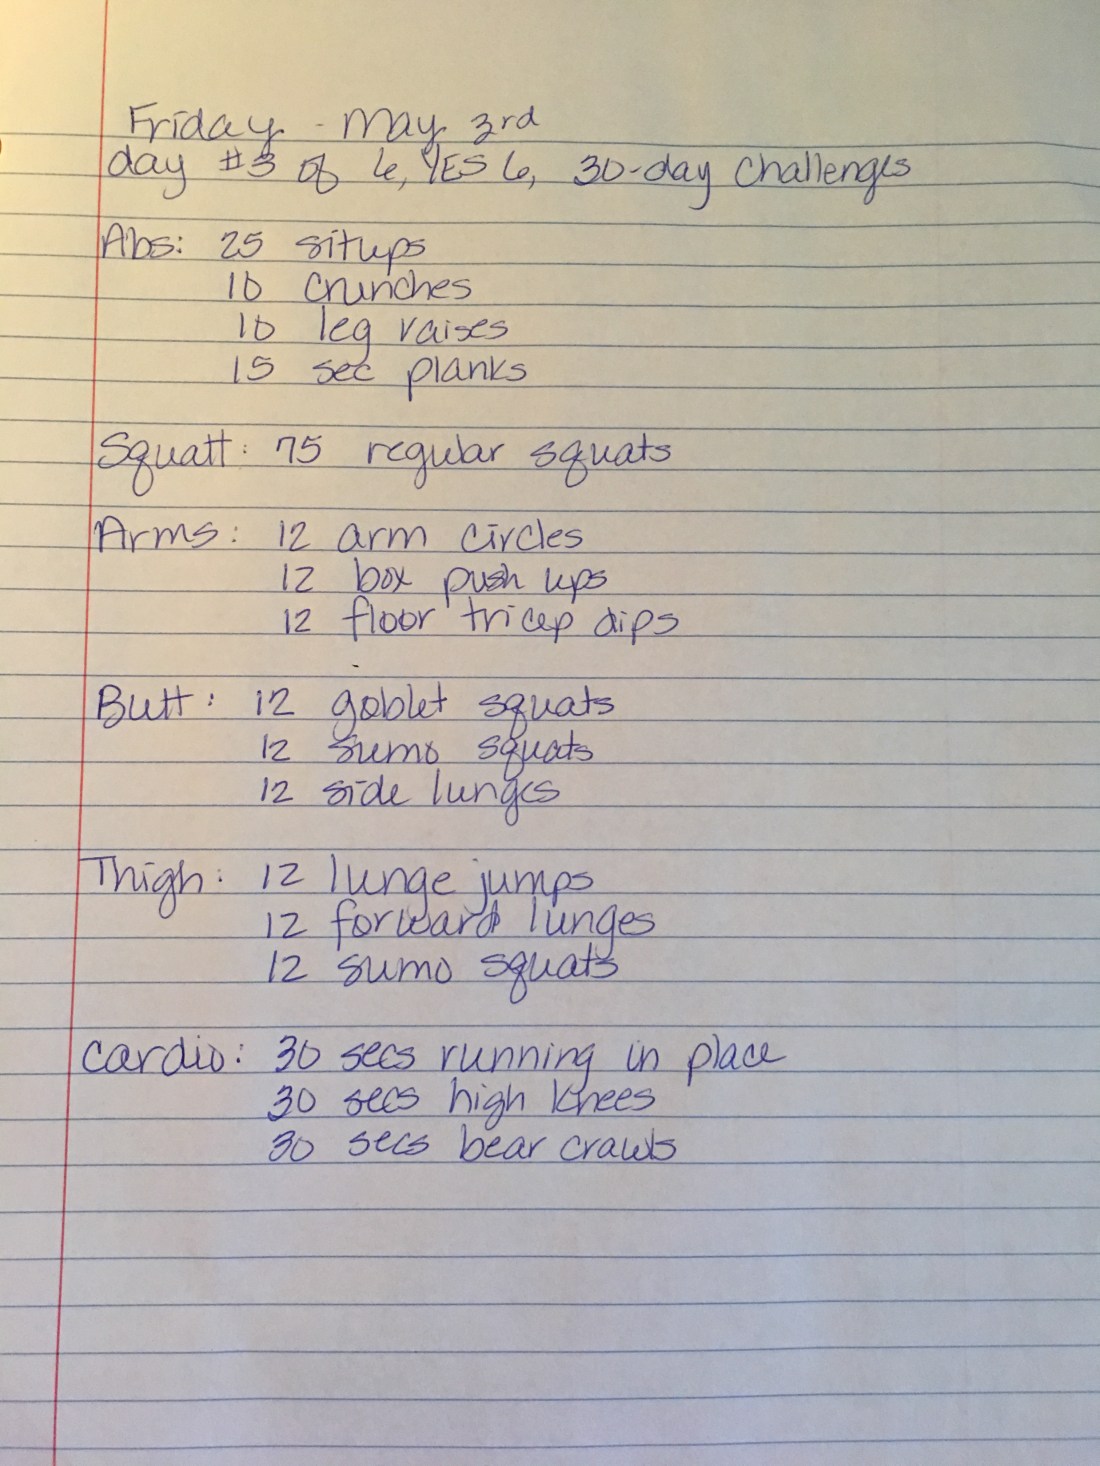 Friday - May 3rd
day #3 of 6, YES 6, 30-day challenges
Abs: 25 situps
10 crunches
10 leg raises
15 sec planks
Squatt: 75 regular squats
Arms: 12 arm circles
12 box push ups
12 floor tricep dips
Butt: 12 goblet squats
12 sumo squats
12 side lunges
Thigh: 12 lunge jumps
12 forward lunges
12 sumo squats
Cardio: 30 secs running in place
30 secs high knees
30 secs bear crawls